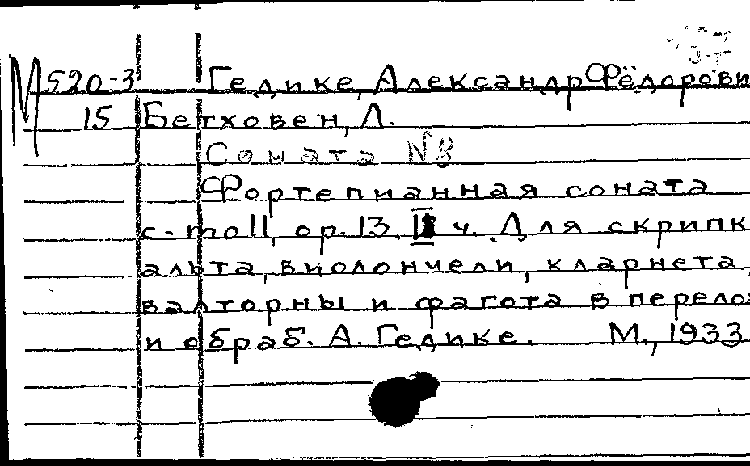 М520-3 Гедике, Александр Фёдорови
15 Бетховен, Л.
Соната №8
Фортепианная соната
c-moll, op.13. II ч. Для скрипк
альта, виолончели, кларнета,
валторны и фагота в перело
и обраб. А. Гедике. М., 1933